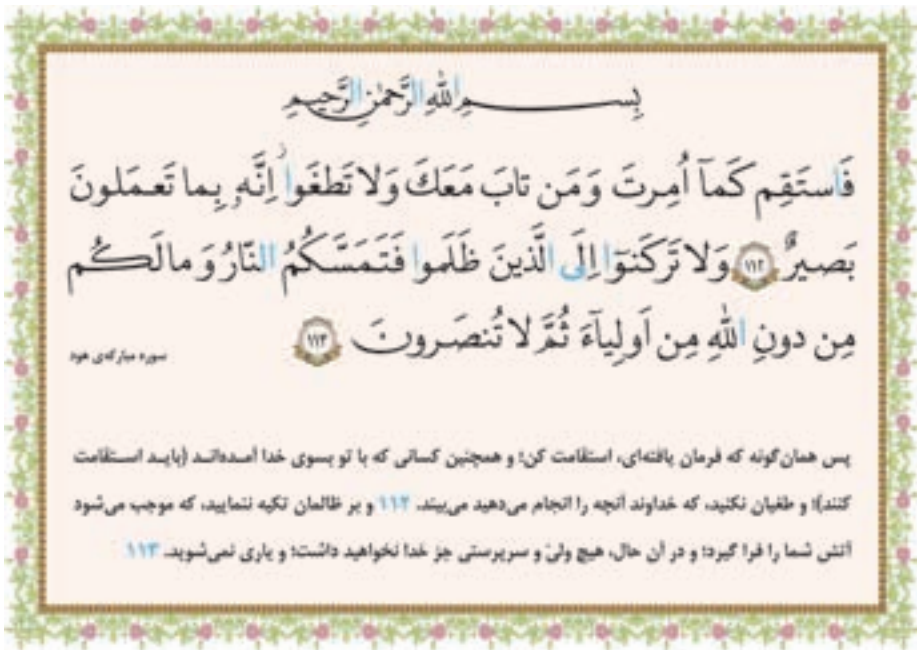 بِسـمِ اللّٰهِ الرَّحمٰنِ الرَّحيمِ
فَاستَقِم كَمآ اُمِرتَ وَمَن تابَ مَعَكَ وَلا تَطغَوا اِنَّهٗ بِما تَعمَلونَ
بَصيرٌ ۱۱۲ وَلا تَركَنوٓا اِلَى الَّذينَ ظَلَموا فَتَمَسَّكُمُ النّارُ وَ ما لَكُم
مِن دونِ اللّٰهِ مِن اَولِيآءَ ثُمَّ لا تُنصَرونَ ۱۱۳
سوره مبارکه‌ی هود
پس همان‌گونه که فرمان یافته‌ای، استقامت کن؛ و همچنین کسانی که با تو بسوی خدا آمده‌اند (باید استقامت
کنند)؛ و طغیان نکنید، که خداوند آنچه را انجام می‌دهید می‌بیند. ۱۱۲ و بر ظالمان تکیه ننمایید، که موجب می‌شود
آتش شما را فرا گیرد؛ و در آن حال، هیچ ولیّ و سرپرستی جز خدا نخواهید داشت؛ و یاری نمی‌شوید. ۱۱۳